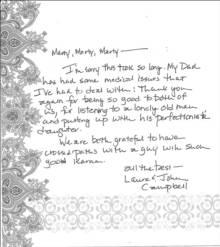 Marty, Marty, Marty —
I'm sorry this took so long. My Dad
has had some medical issues that
I've had to deal with. Thank you
again for being so good to both of
us, for listening to a lonely old man
and putting up with his perfectionist
daughter.
We are both grateful to have
crossed paths with a guy with such
good karma.
all the best —
Laura & John
Campbell